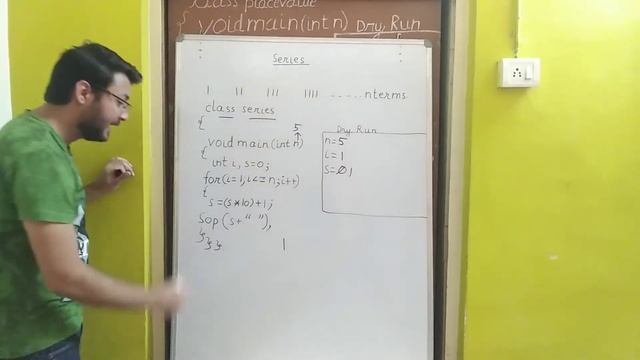 class placevalue
{ void main(int n) Dry Run
Series
1 11 111 1111 ..... n terms
class series
{
5
void main(int n)
{ int i, s=0;
for(i=1;i<=n;i++)
{
s=(s*10)+1;
Sop(s+" ");
}}}
1
Dry Run
n=5
i=1
s=0 1